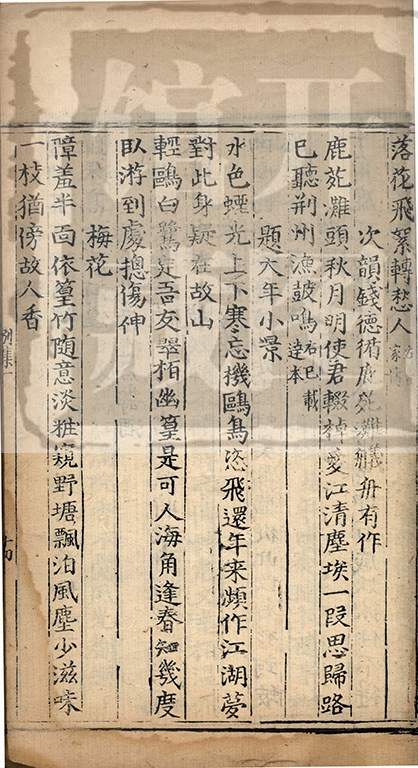 落花飛絮轉愁人
次韻錢德循鹿苑灘艤舟有作
鹿苑灘頭秋月明使君輟棹愛江清塵埃一段思歸路
已聽荆州漁鼓鳴石已載逵本
題大年小景
水色煙光上下寒忘機鷗鳥恣飛還年来頻作江湖夢
對此身疑在故山
輕鷗白鷺定吾友翠柏幽篁是可人海角逢春知幾度
臥游到處摠傷神
梅花
障羞半面依篁竹隨意淡粧窺野塘飄泊風塵少滋味
一枝猶傍故人香
別集一